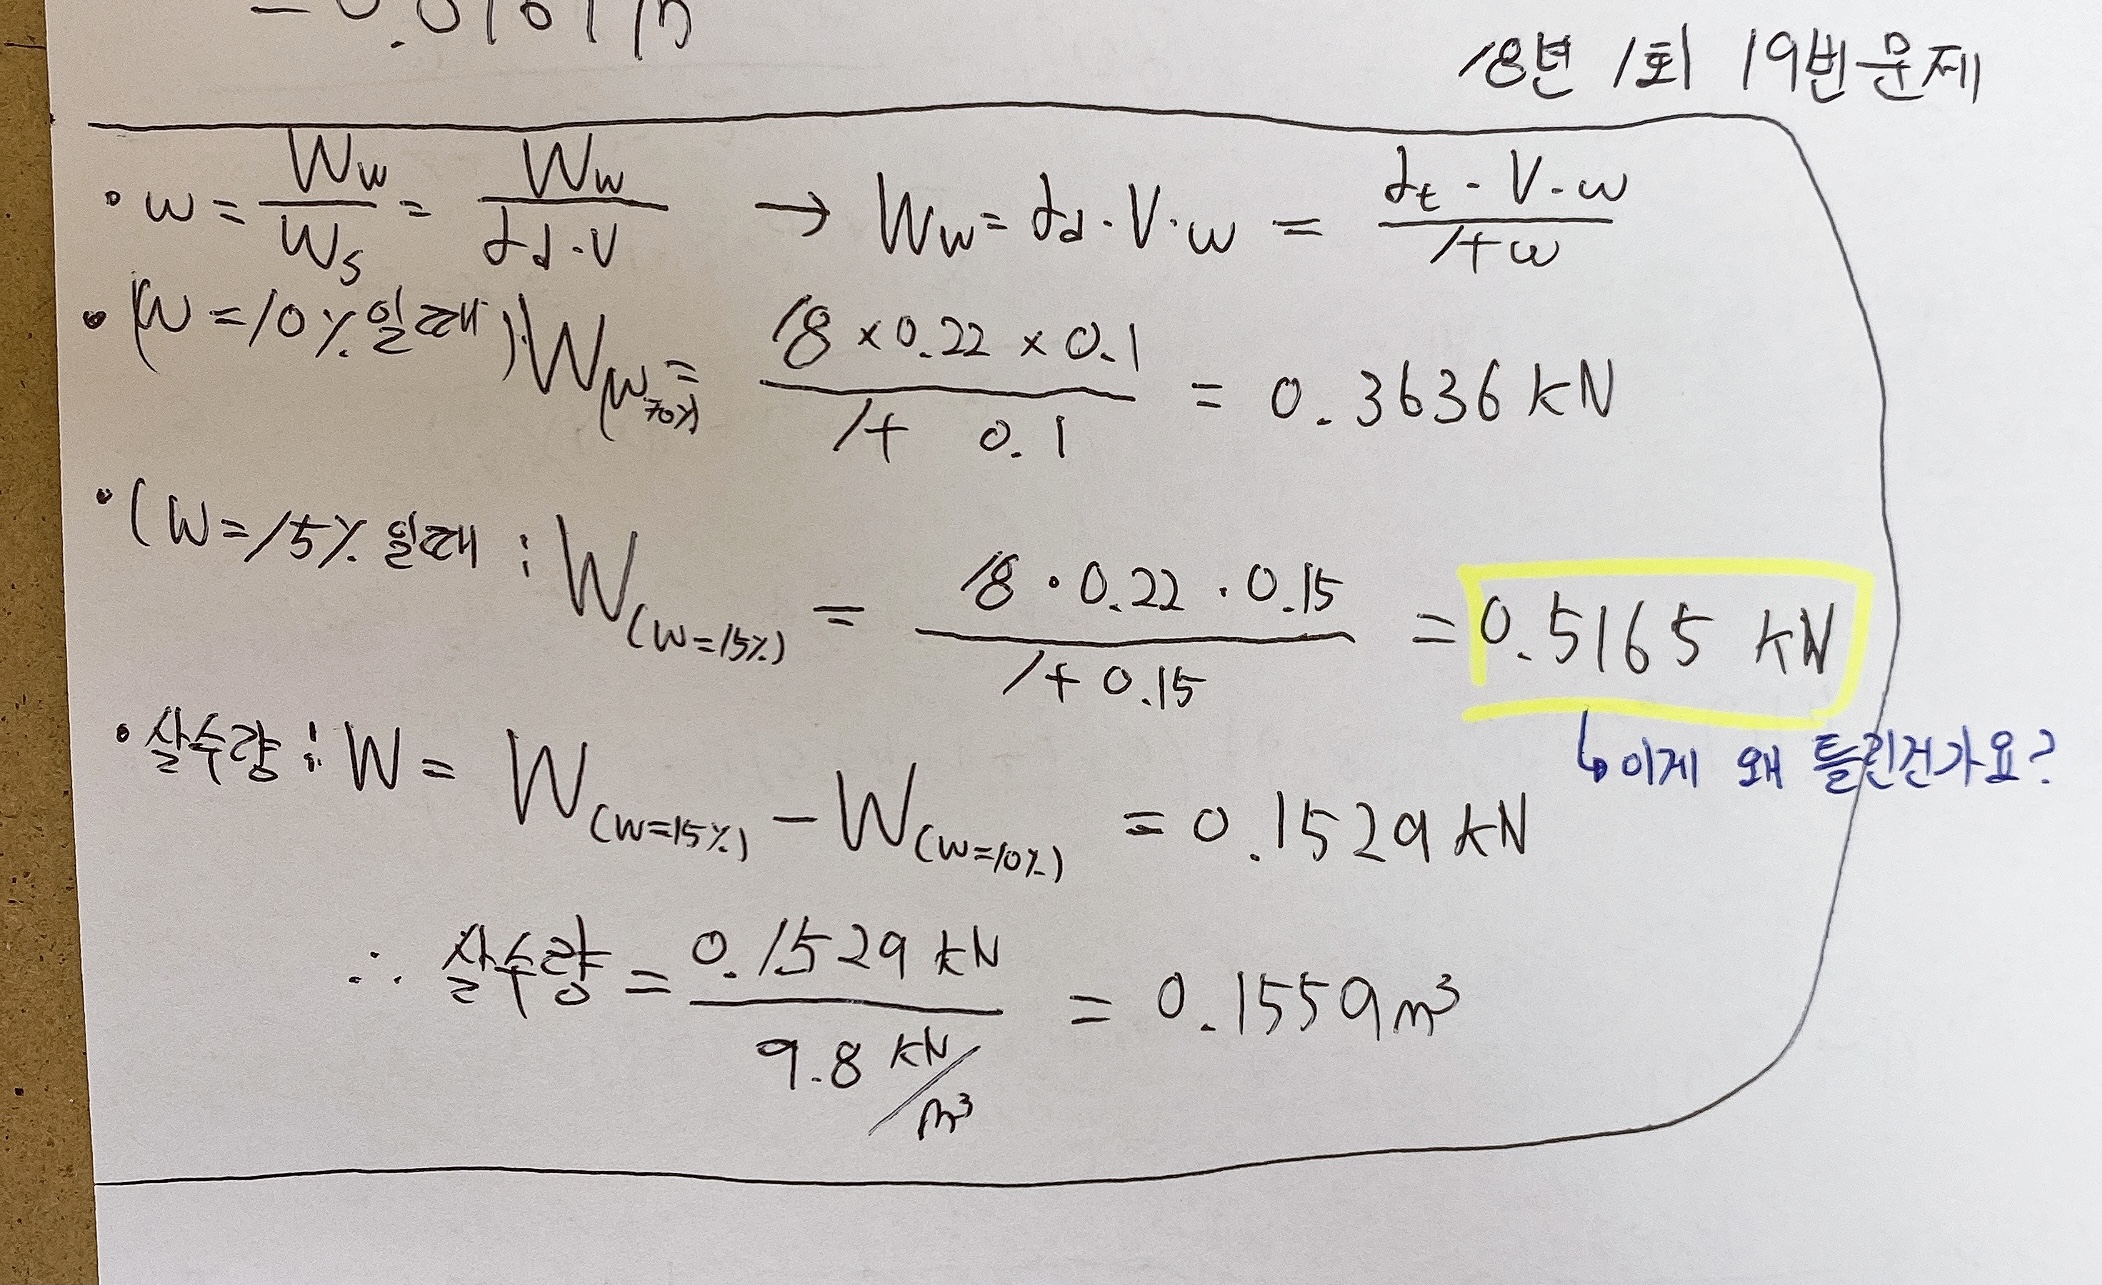 = 0.0161 m
18년 1회 19번문제
• w = Ww/Ws = Ww/γd·V → Ww = γd·V·w = γt·V·w/1+w
• (W=10%일때) W(w=10%) = 18×0.22×0.1/1+0.1 = 0.3636 kN
• (W=15%일때 : W(w=15%) = 18·0.22·0.15/1+0.15 = 0.5165 kN
↳이게 왜 틀린건가요?
• 살수량 : W = W(w=15%) - W(w=10%) = 0.1529 kN
∴ 살수량 = 0.1529 kN/9.8 kN/m³ = 0.1559m³